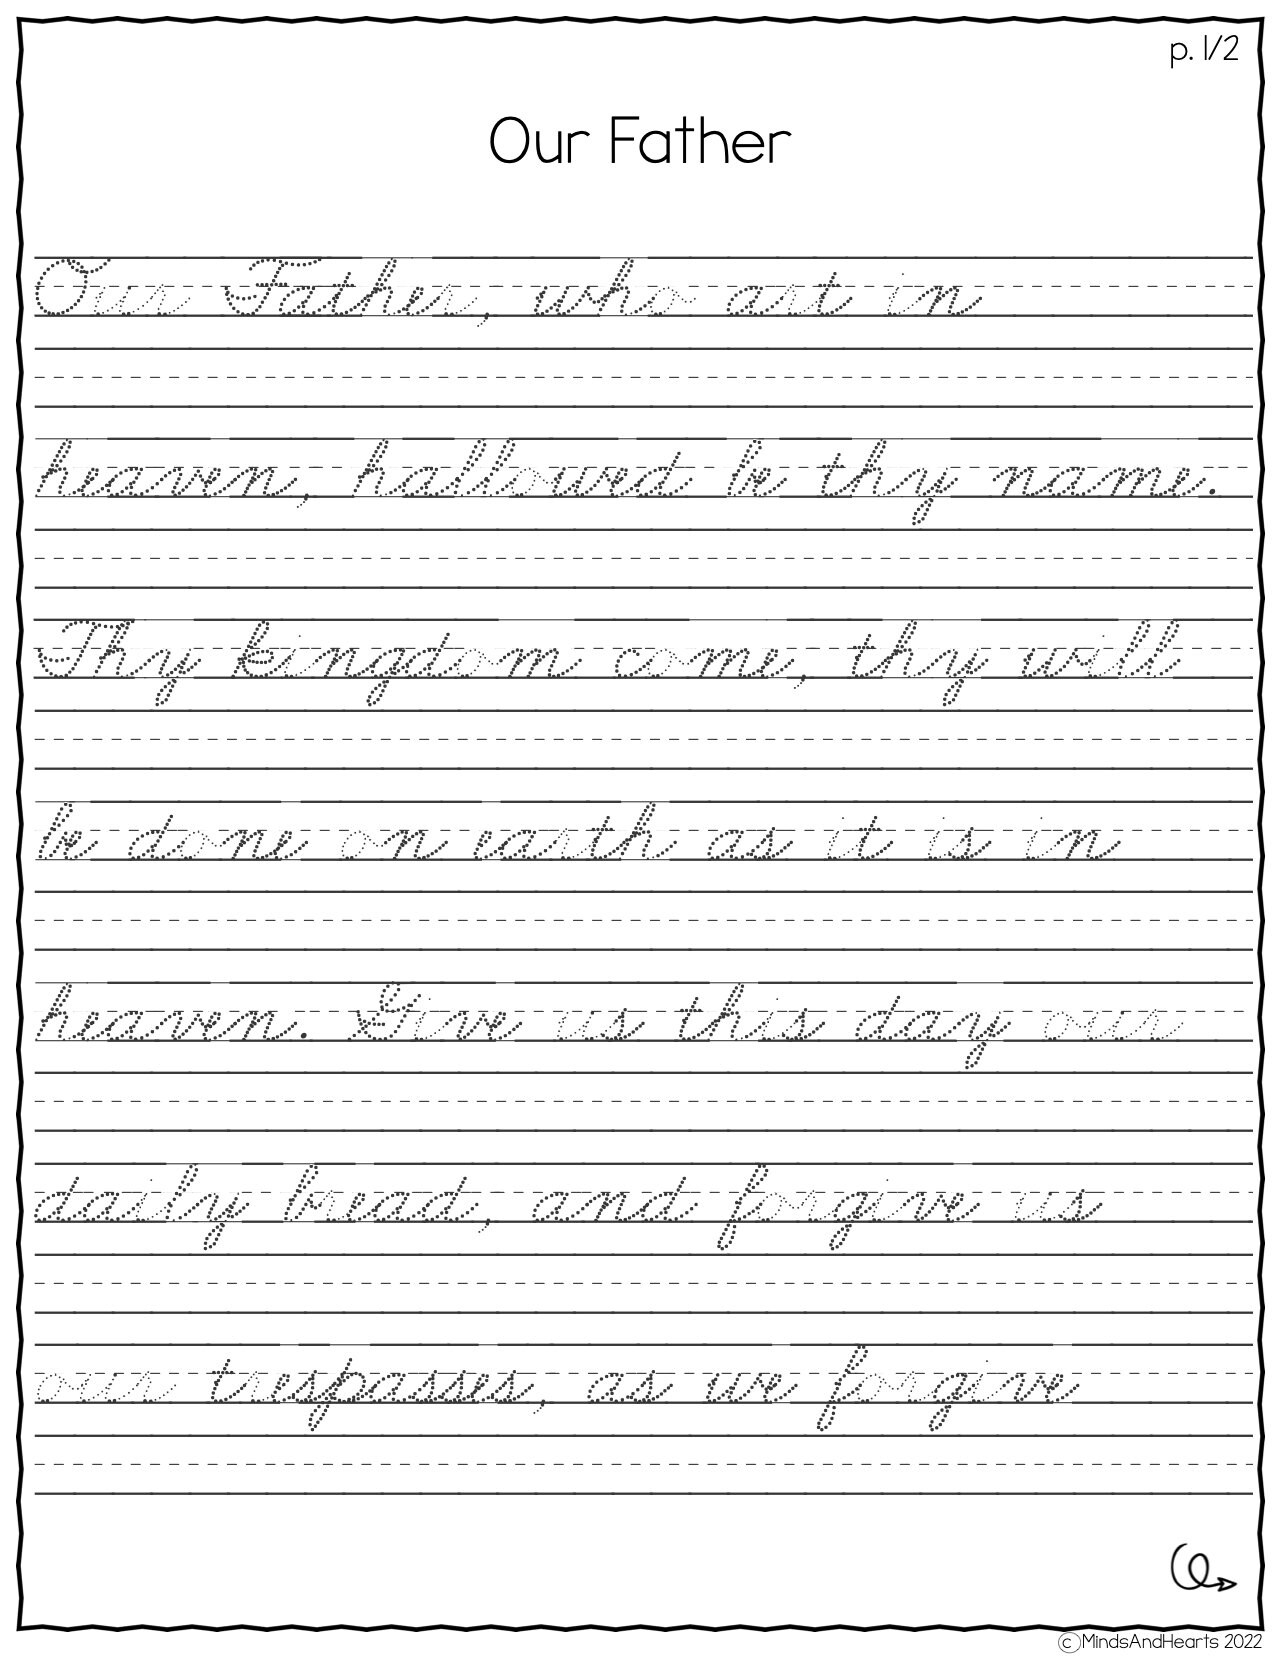 p. 1/2
Our Father
Our Father, who art in
heaven, hallowed be thy name.
Thy kingdom come, thy will
be done on earth as it is in
heaven. Give us this day our
daily bread, and forgive us
our trespasses, as we forgive
©MindsAndHearts 2022